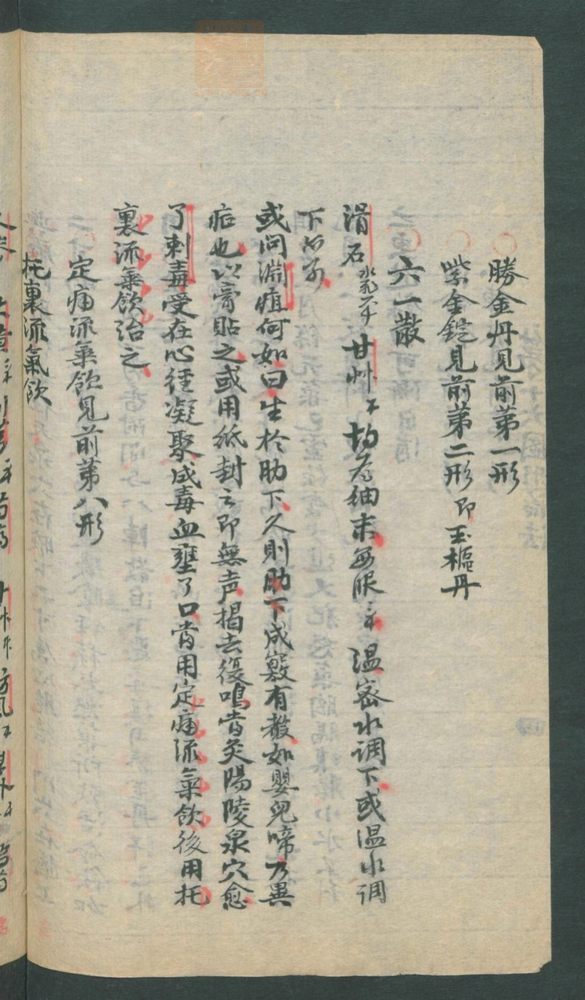 勝金丹見前第一形
紫金錠見前第二形即玉樞丹
六一散
滑石 甘艸 切為細末每服 温密水调下或温水调
下
或问淵疽何如曰生於肋下久則肋下成竅有聲如嬰児啼乃異
疟也以膏貼之或用紙封之即無声揭去復鳴當灸陽陵泉穴愈
了刺毒受在心经凝聚成毒血壅了口當用定痛流氣飲後用托
裏流氣飲治之
定痛流氣飲見前第八形
托裏流氣飲